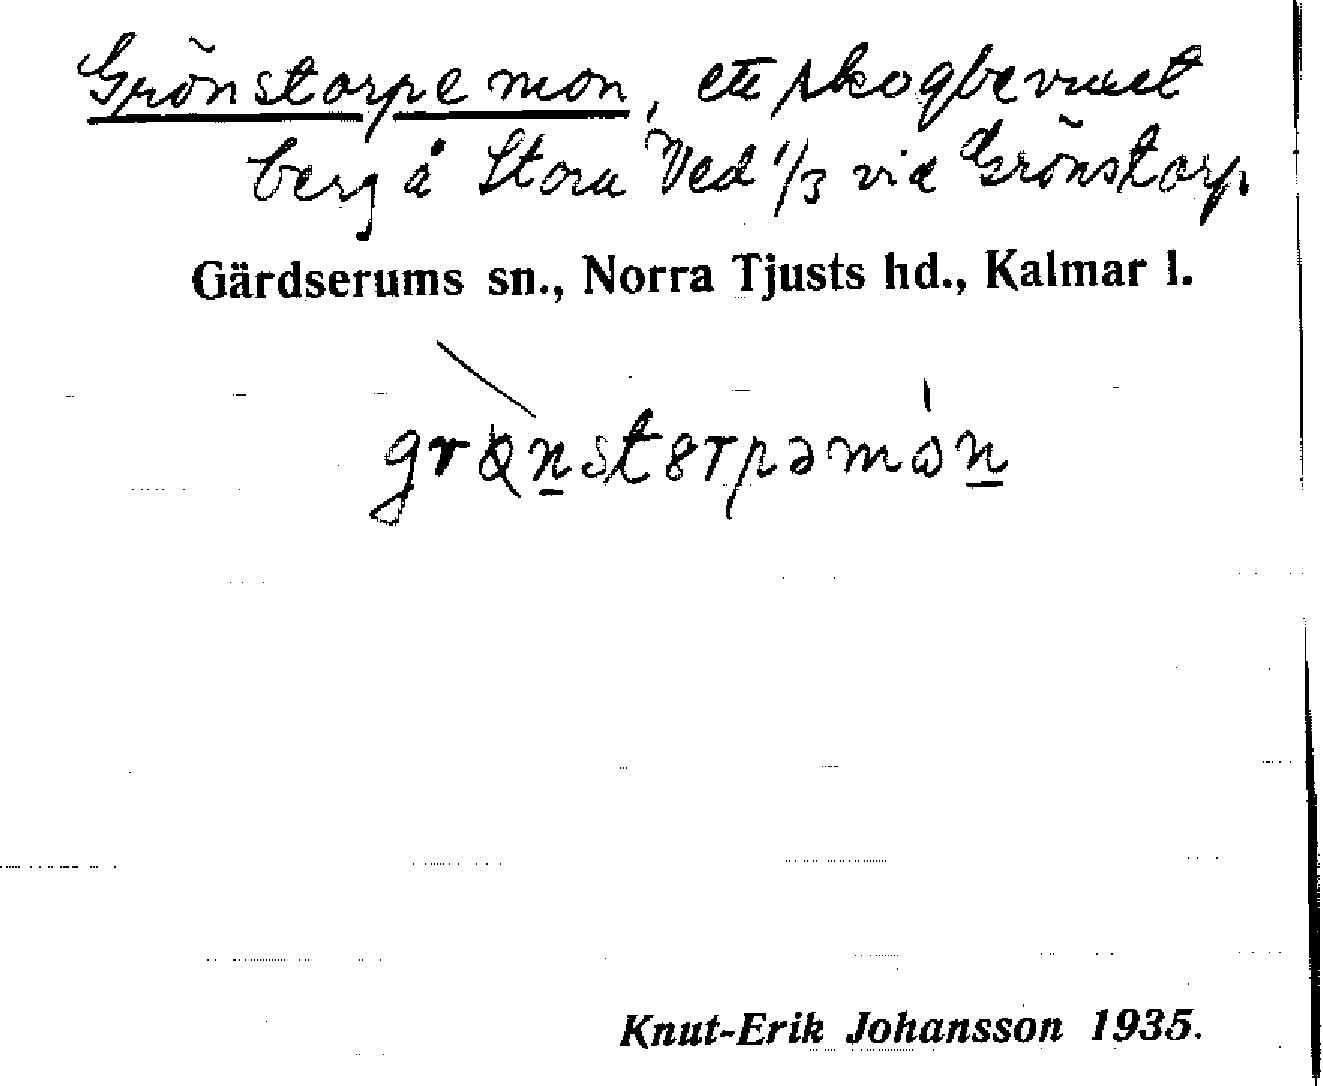 Grönstorpe mon, ett skogbevuxet
berg å Stora Ved 1/3 vid Grönstorp
Gärdserums sn., Norra Tjusts hd., Kalmar l.
Knut-Erik Johansson 1935.